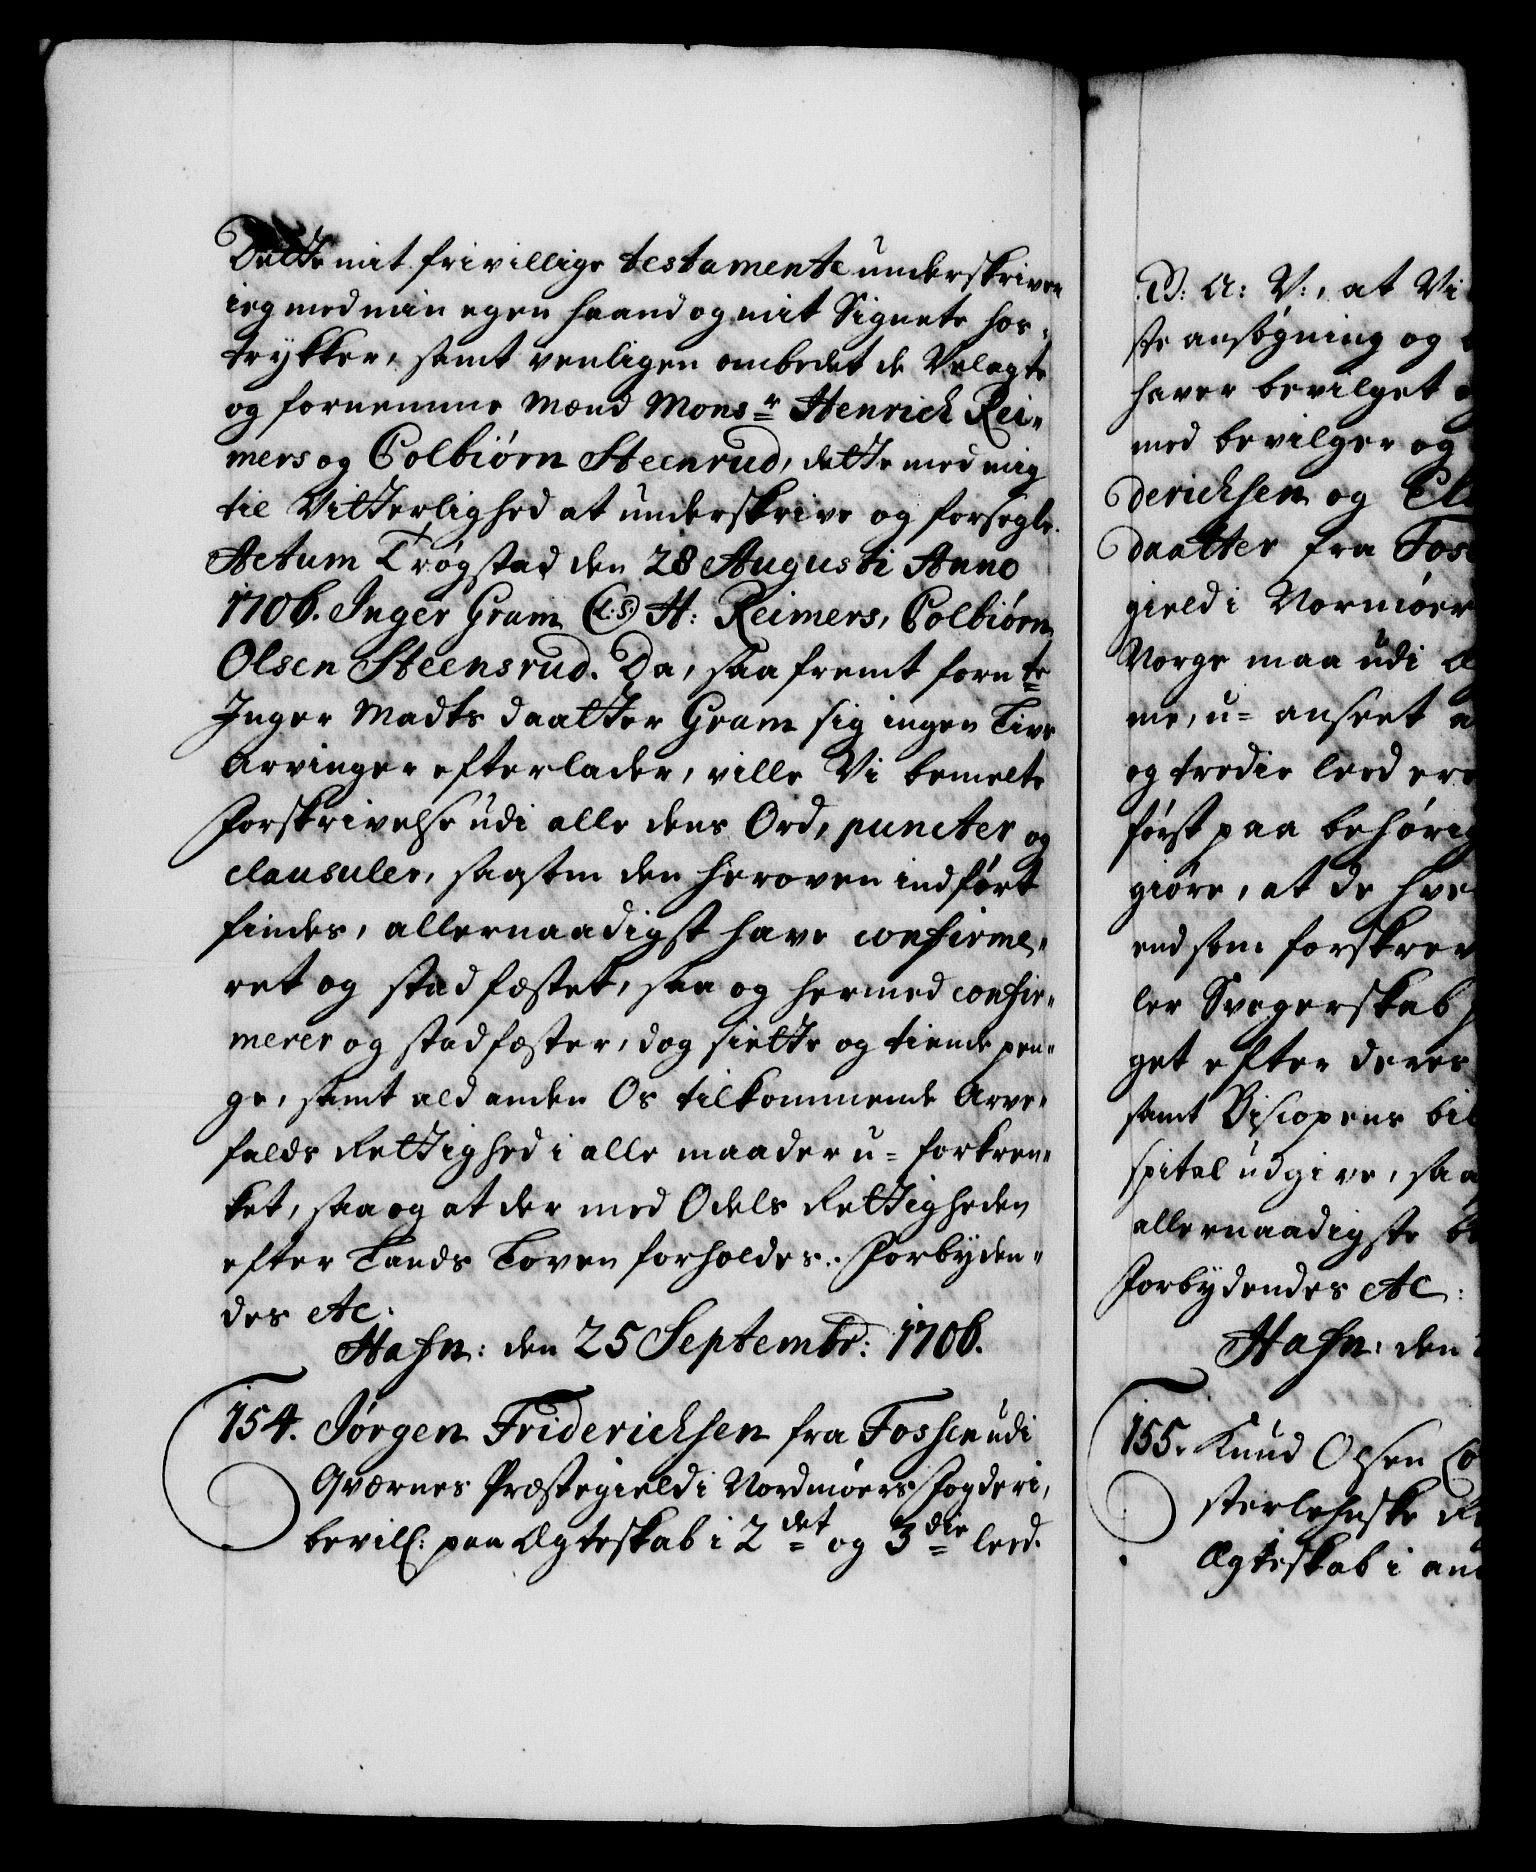 Dette mit frivillige testamente underskriver
ieg med min egen haand og mit Signete hos-
trykker, samt venligen ombedet de Velagte
og fornemme Mænd Mons.r Henrich Rei-
mers og Colbiørn Steenrud, dette med mig
til Vitterlighed at underskrive og forsegle.
Actum Trøgstad den 28 Augusti Anno
1706. Inger Gram (L:S:) H: Reimers, Colbiørn
Olsen Steensrud. Da, saafremt forn.te
Inger Madts daatter Gram sig ingen Livs
Arvinger efterlader, ville Vi bemelte
Forskrivelse udi alle dens Ord, puncter og
clausuler, saasom den heroven indført
findes, allernaadigst have confirme-
ret og stadfæstet, saa og hermed confir-
merer og stadfæster, dog siette og tiende pen-
ge, samt ald anden Os tilkommende Arve-
falds Rettighed i alle maader u= forkren-
ket, saa og at der med Odels Rettigheden
efter Lands Loven forholdes. Forbyden-
des etc:
Hafn: den 25 Septembr: 1706.
154. Jørgen Friderichsen fra Fossen udi
Qværnes Præstegield i Nordmøers Fogderi,
bevill: paa Ægteskab i 2det og 3die leed.
V: A: V:, at Vi
ste ansøgning og
haver bevilget
med bevilger og
derichsen og
daatter fra
gield i Normøer
Norge maa udi
me, u= anseet
og tredie leed ere
først paa behørig
giøre, at de
end som forskrev
ler Svogerskab
get efter deres
samt Biscopens
spital udgive, saa
allernaadigste
Forbydendes etc:
Hafn: den
155. Knud Olsen
sterlehnske
Ægteskab i